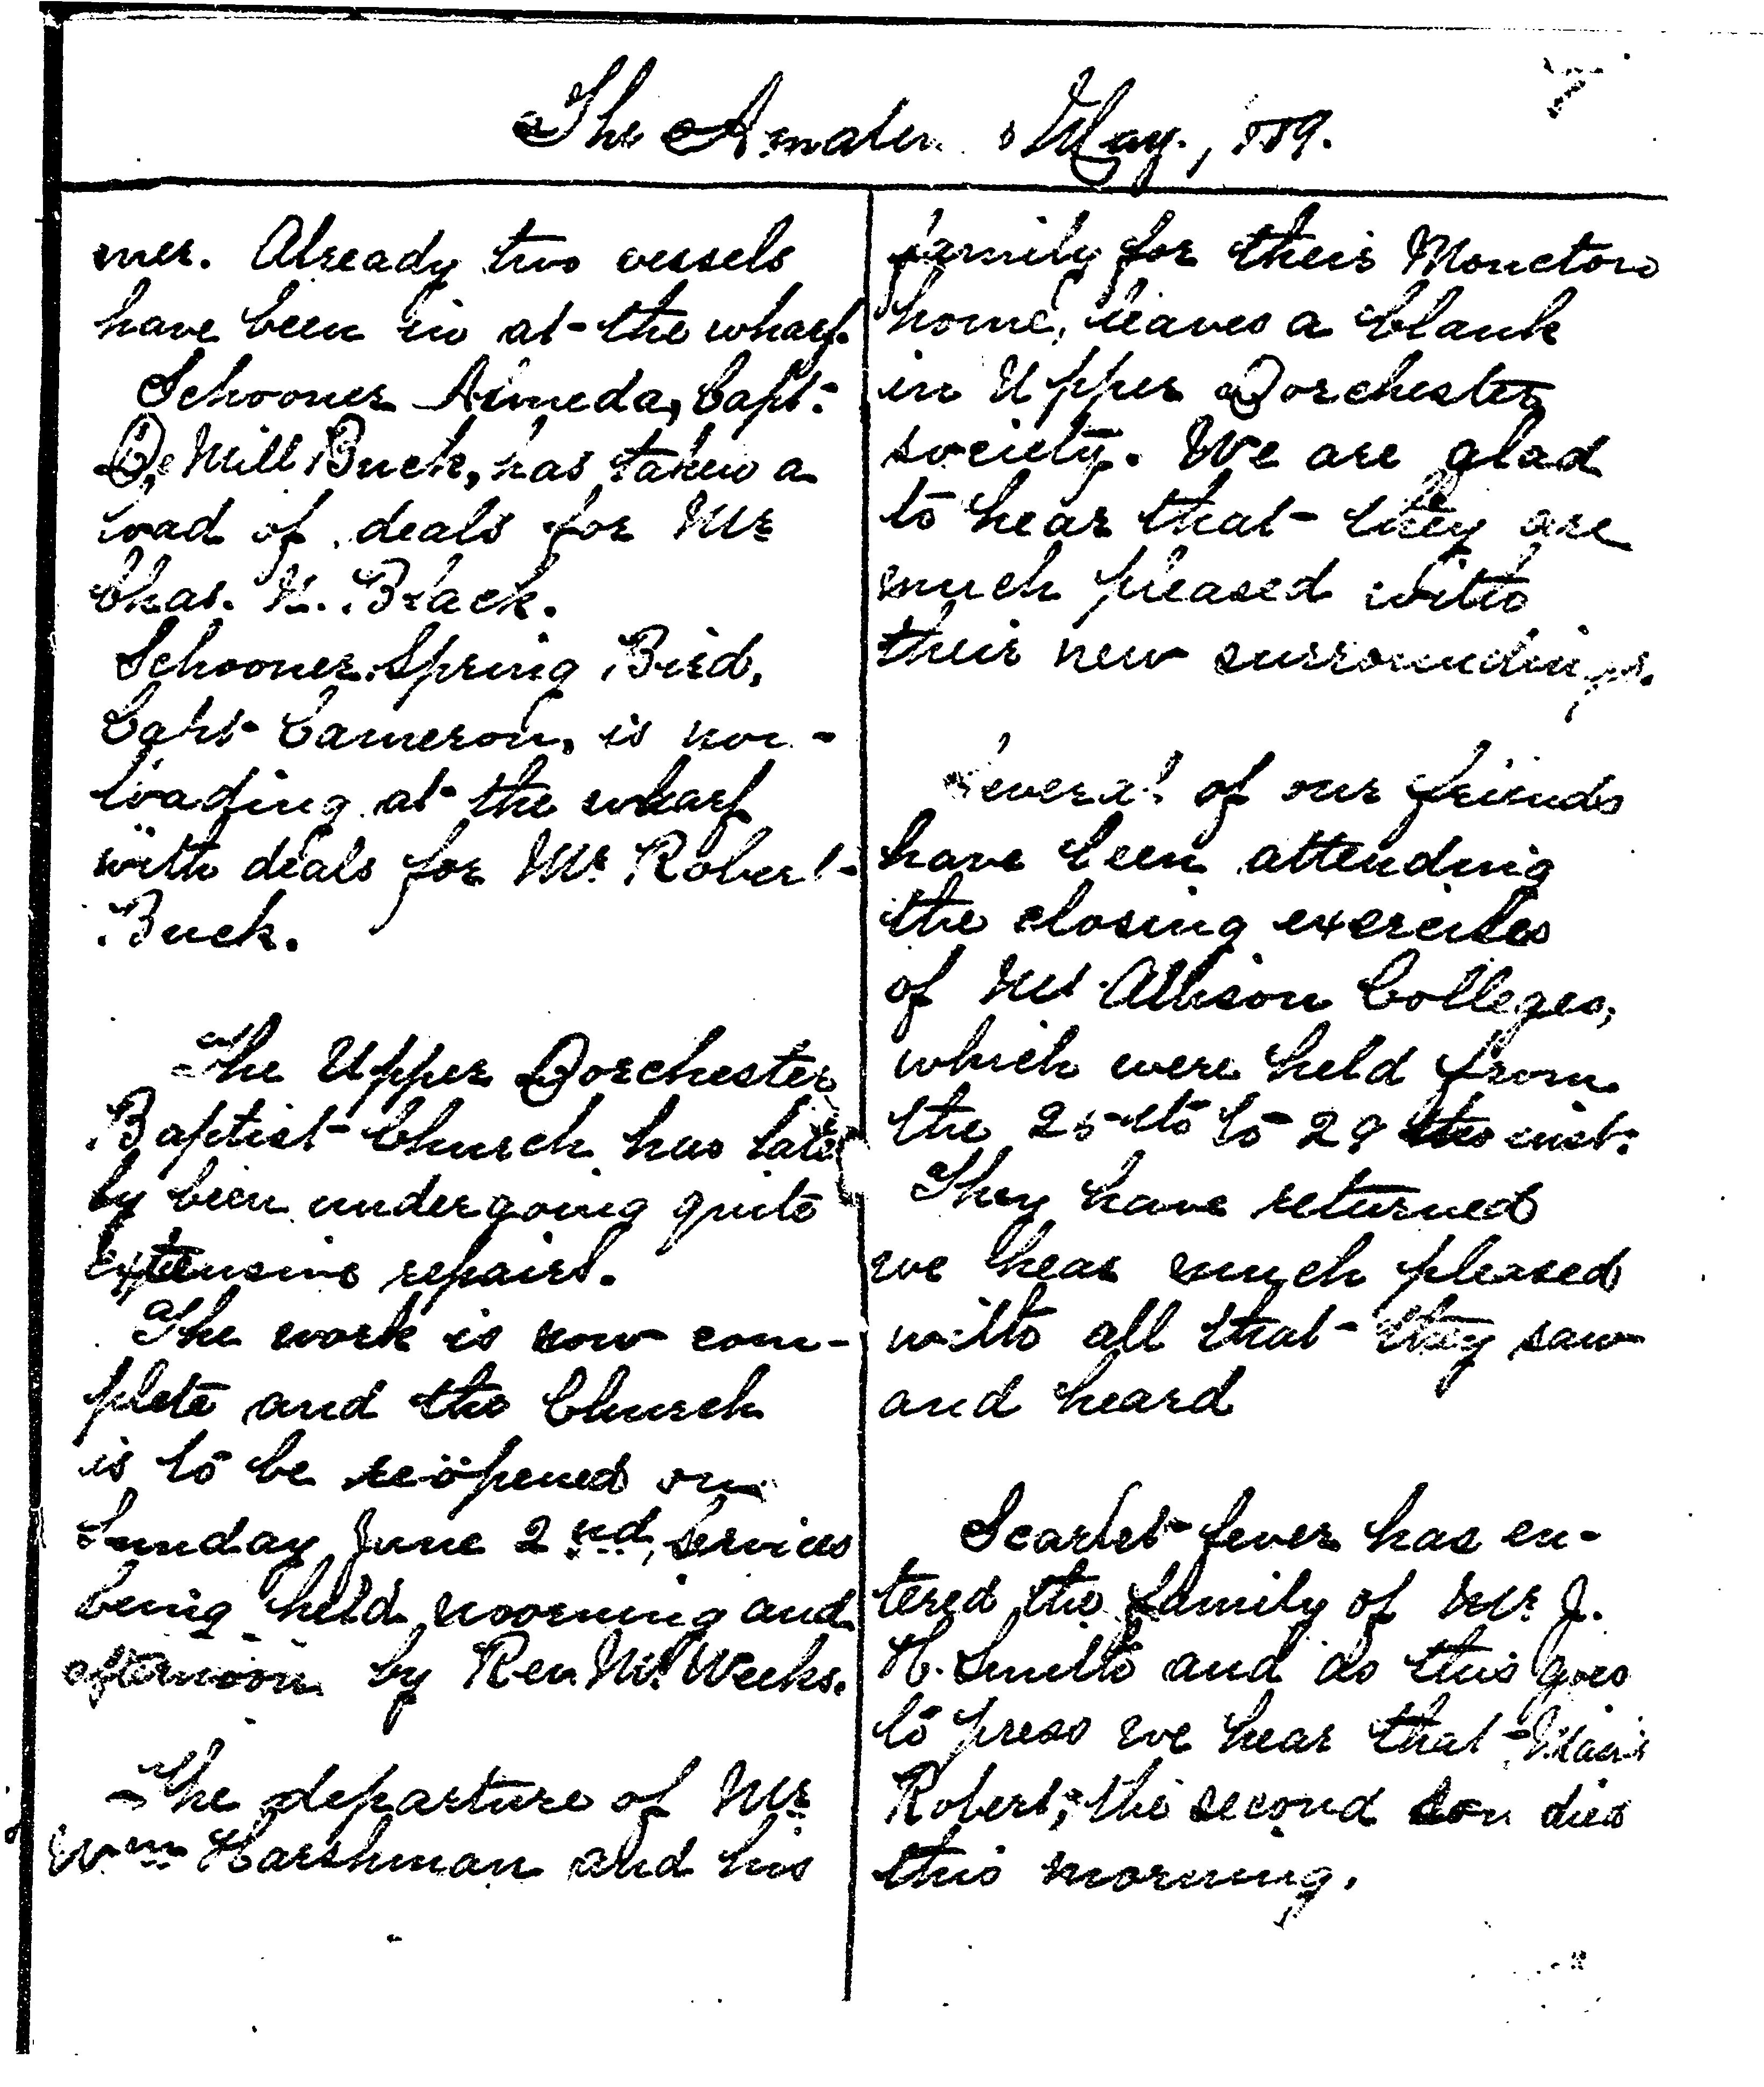 The Amateur May, 1889.
7
mer. Already two vessels
have been in at the wharf.
Schooner Almeda, Capt.
De Mill Buck, has taken a
load of deals for Mr
Chas. H. Black.
Schooner Spring Bird,
Capt Cameron, is now
loading at the wharf
with deals for Mr. Robert
Buck.
The Upper Dorchester
Baptist Church has late
ly been undergoing quite
extensive repairs.
The work is now com-
plete and the Church
is to be reöpened on
Sunday June 2nd, Services
being held morning and
afternoon by Rev. Mr. Weeks.
The departure of Mr
Wm Harshman and his
family for their Moncton
home, leaves a blank
in Upper Dorchester
society. We are glad
to hear that they are
much pleased with
their new surroundings.
Several of our friends
have been attending
the closing exercises
of Mt. Allison Colleges,
which were held from
the 25th to 29 the inst.
They have returned
we hear much pleased
with all that they saw
and heard
Scarlet fever has en-
tered the family of Mr. J.
H. Smith and as this goes
to press we hear that
Robert, the second son died
this morning.